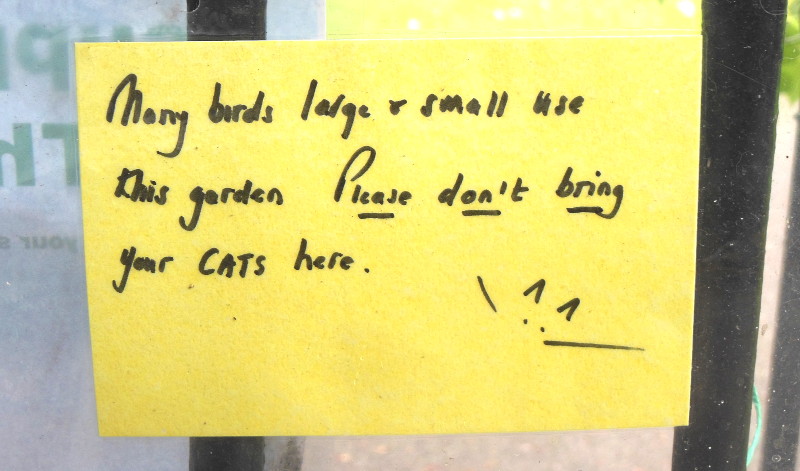 Many birds large & small use
this garden Please don't bring
your CATS here.